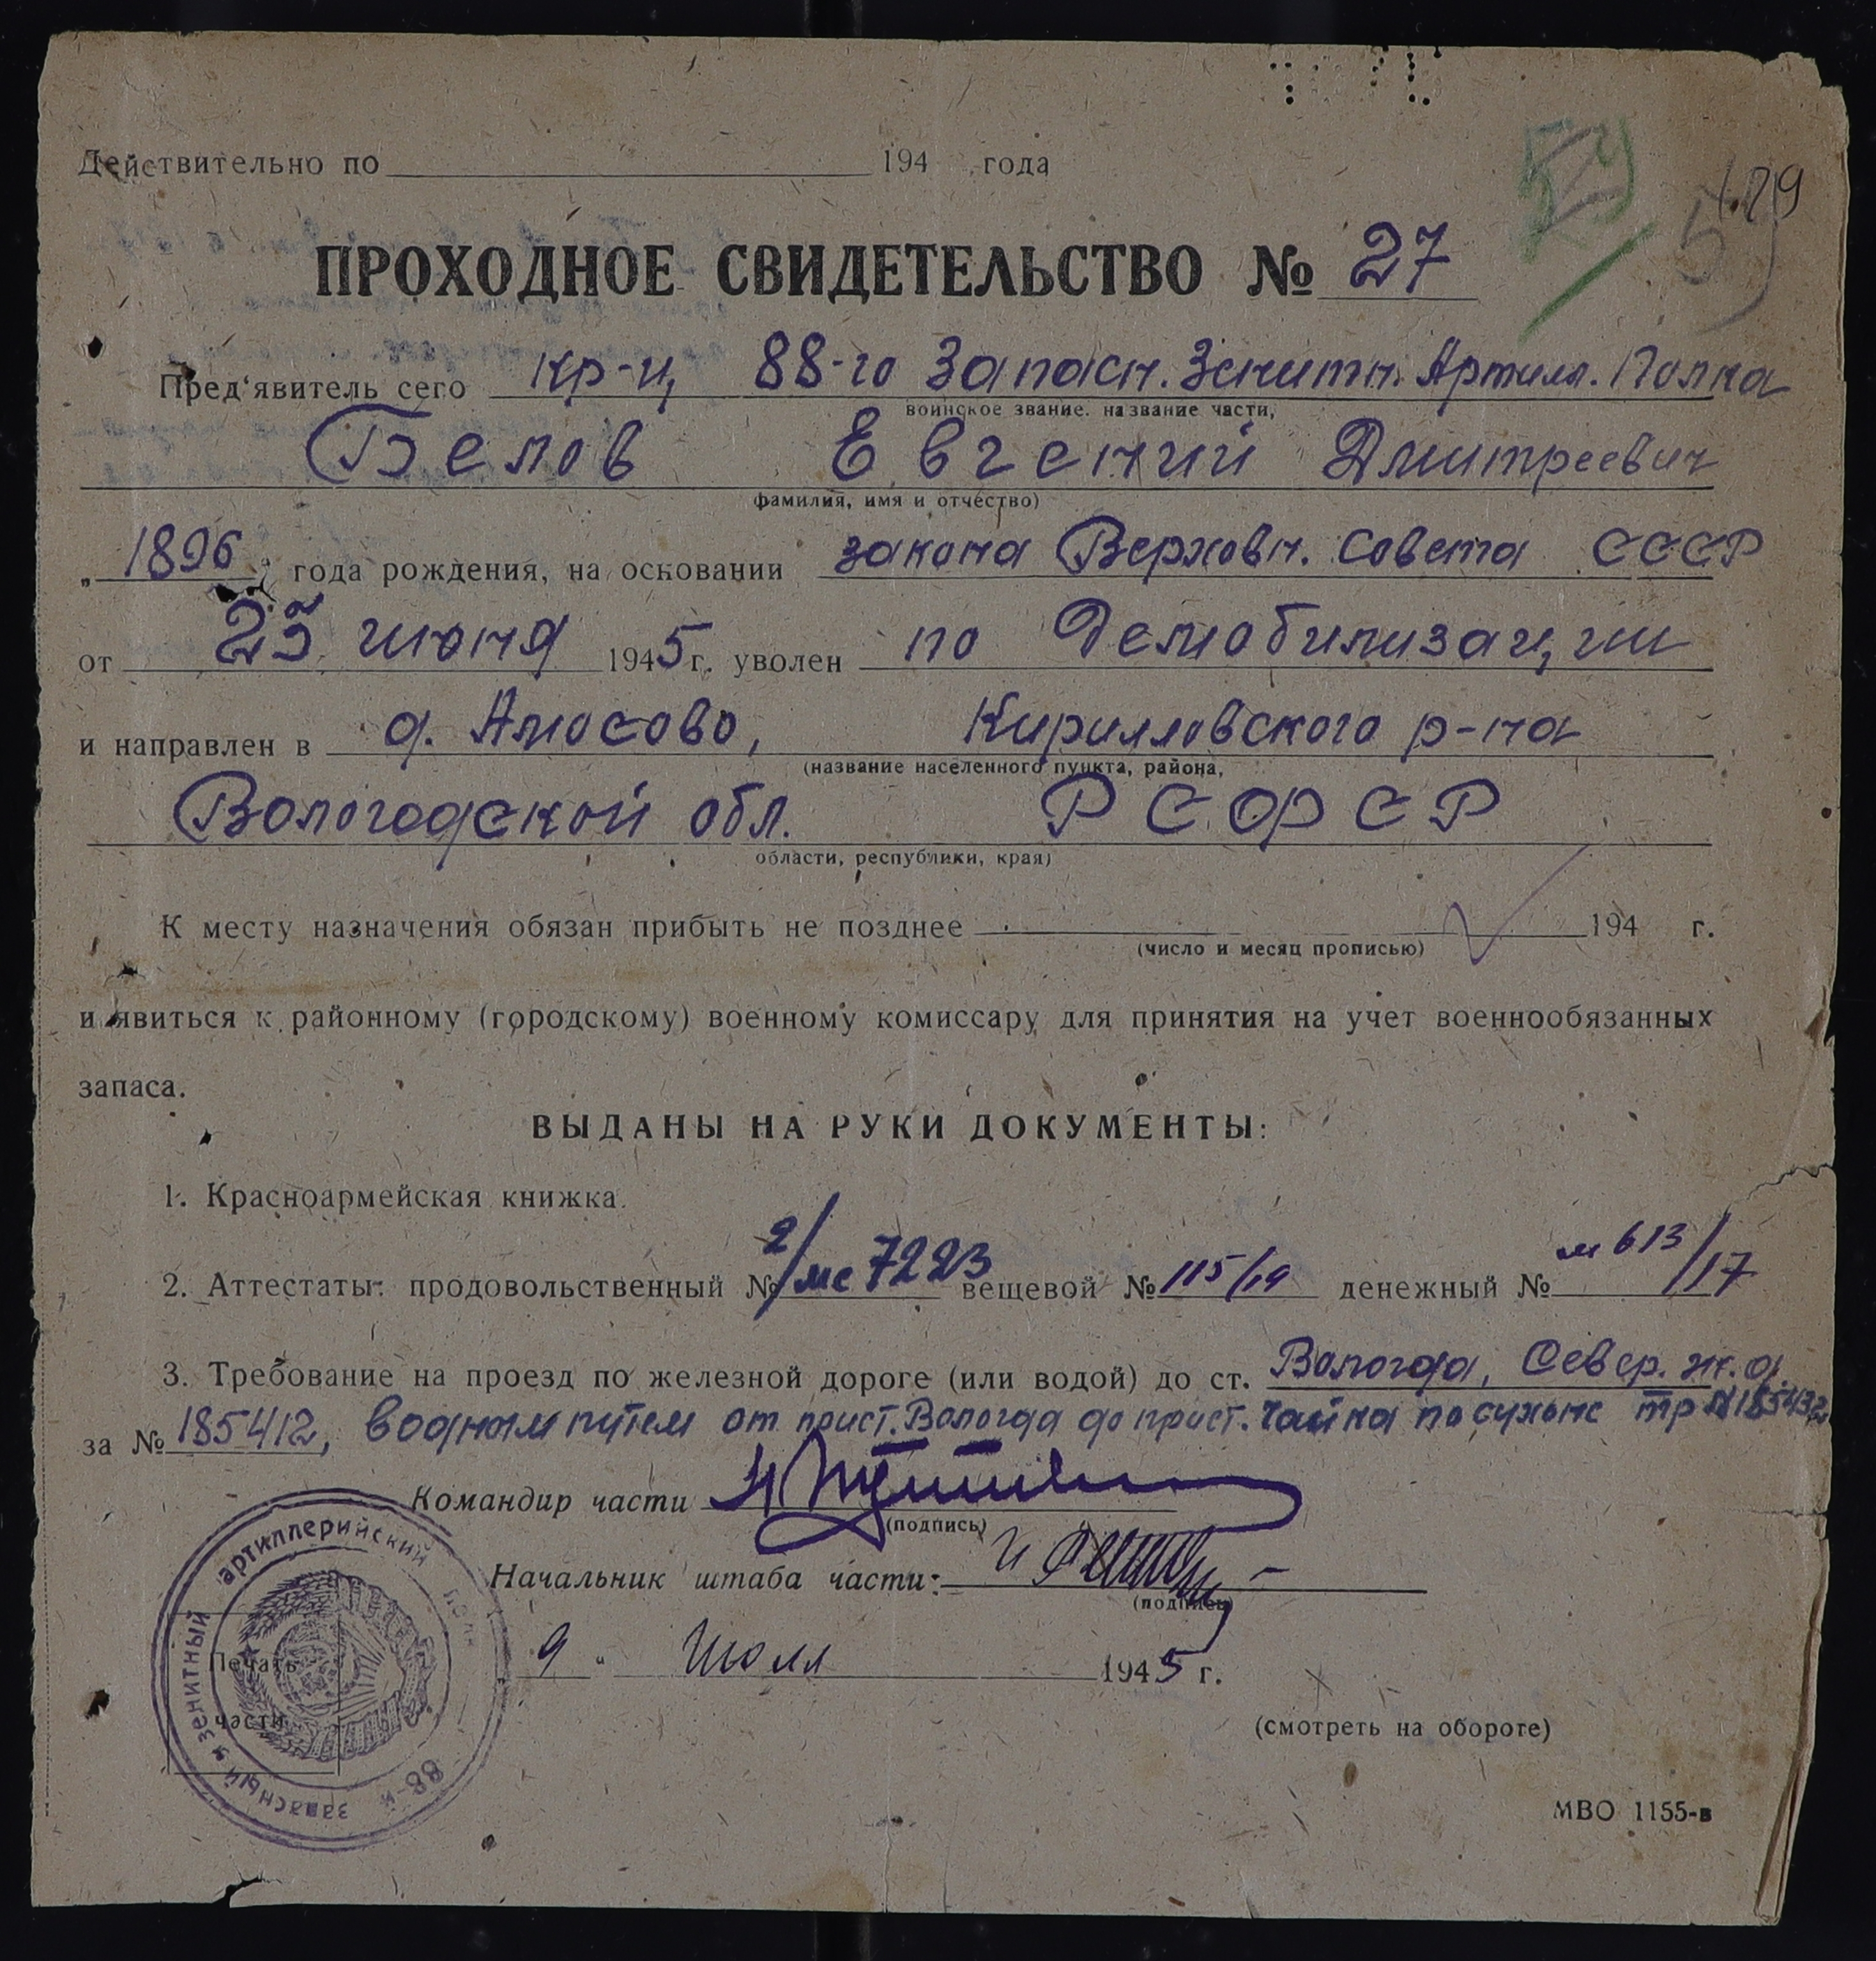 Действительно по 194 года
54
129
59
ПРОХОДНОЕ СВИДЕТЕЛЬСТВО № 27
Пред'явитель сего кр-ц, 88-го Запасн. Зенитн. Артилл. Полка
воинское звание. название части,
Белов Евгений Дмитреевич
фамилия, имя и отчество)
„1896" года рождения, на основании закона Верховн. Совета СССР
от 23 июня 1945 г. уволен по Демобилизации
и направлен в д. Амосово, Кирилловского р-на
(название населенного пункта, района,
Вологодской обл. РСФСР
области, республики, края)
К месту назначения обязан прибыть не позднее 194 г.
(число и месяц прописью)
и явиться к районному (городскому) военному комиссару для принятия на учет военнообязанных
запаса.
ВЫДАНЫ НА РУКИ ДОКУМЕНТЫ:
1. Красноармейская книжка.
2. Аттестаты: продовольственный № 2/мс 7223 вещевой № 115/19 денежный № м 613/17
3. Требование на проезд по железной дороге (или водой) до ст. Вологда, Север. ж. д.
за № 185412, водным путем от прист. Вологда до прист. Чайка по сухоне тр № 185432
Командир части
(подпись)
Начальник штаба части:
(подпись)
9 " Июля 1945 г.
Печать
части
88-й запасный зенитный артиллерийский полк
(смотреть на обороте)
МВО 1155-в